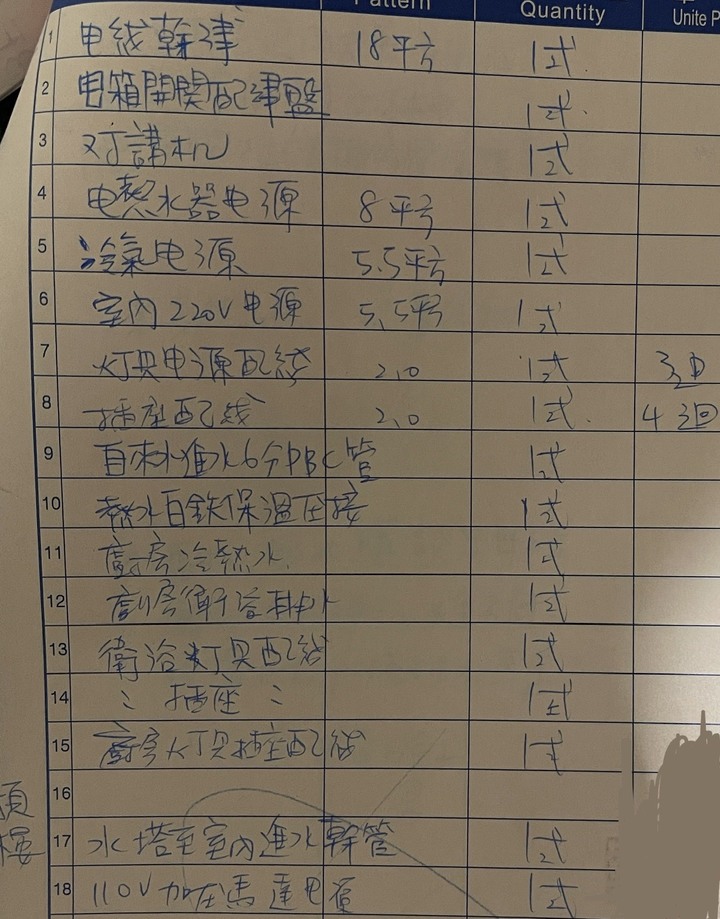 Pattern Quantity Unite P
1 电线幹線 18平方 1式
2 电箱開関配線盤 1式
3 对講机 1式
4 电熱水器电源 8平方 1式
5 冷氣电源 5.5平方 1式
6 室内220V电源 5.5平方 1式
7 灯具电源配线 2.0 1式 3回
8 插座配线 2.0 1式 4迴
9 自來水進水6分PBC管 1式
10 熱水白鉄保溫压接 1式
11 廚房冷熱水 1式
12 廚房衛浴排水 1式
13 衛浴灯具配线 1式
14 〃 插座 〃 1式
15 廚房灯具插座配线 1式
16
頂樓
17 水塔至室内進水幹管 1式
18 110V加在馬達电源 1式